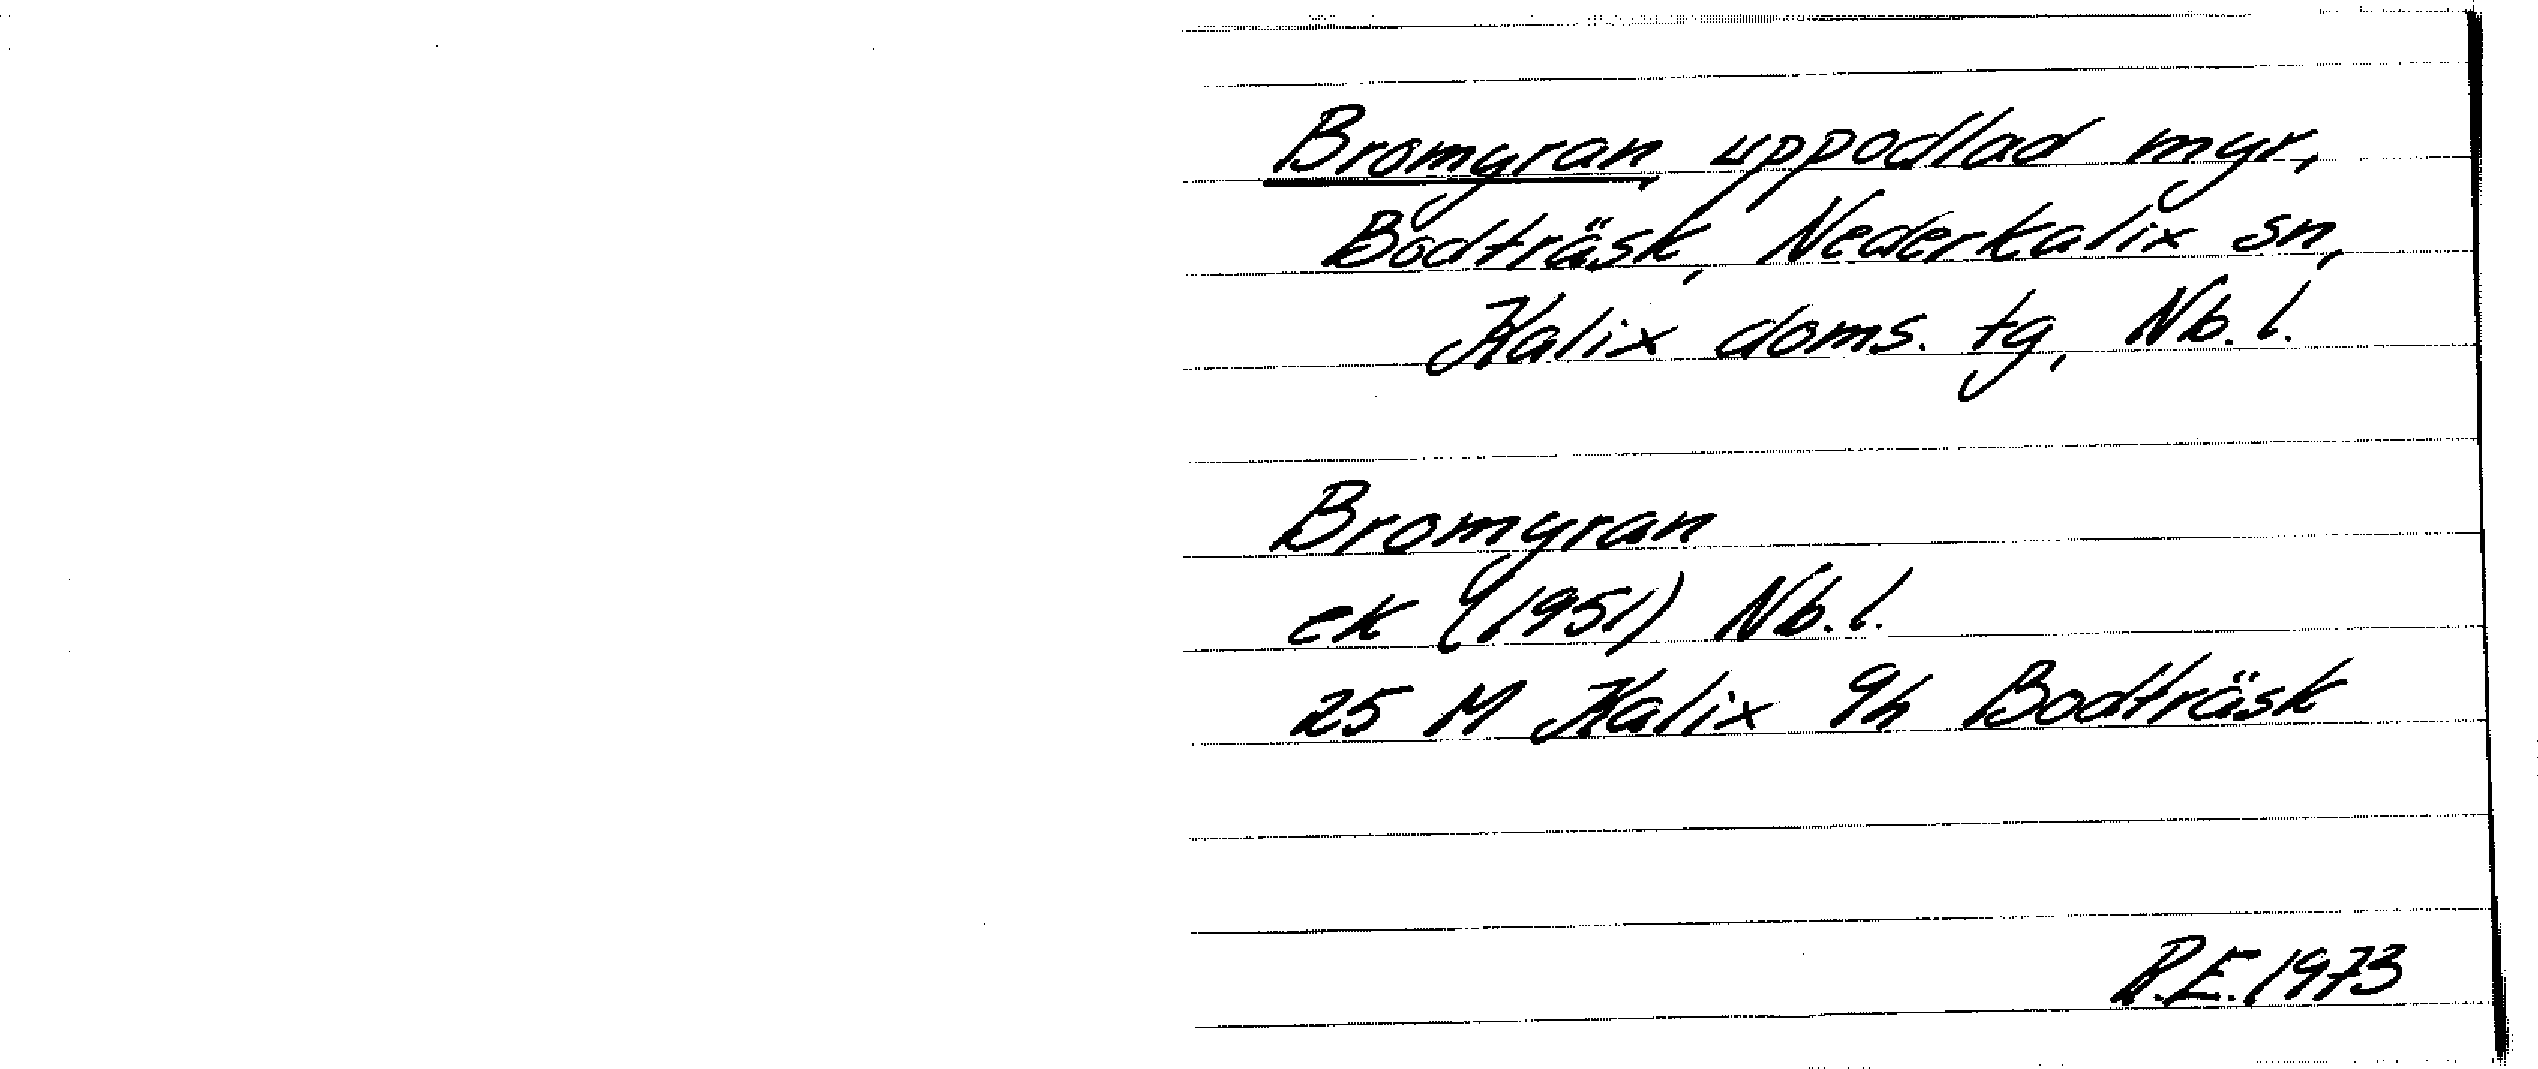 Bromyran, uppodlad myr,
Bodträsk, Nederkalix sn,
Kalix doms. tg, Nb. l.
Bromyran
ek (1951) Nb. l.
25 M Kalix 9h Bodträsk
R.E. 1973